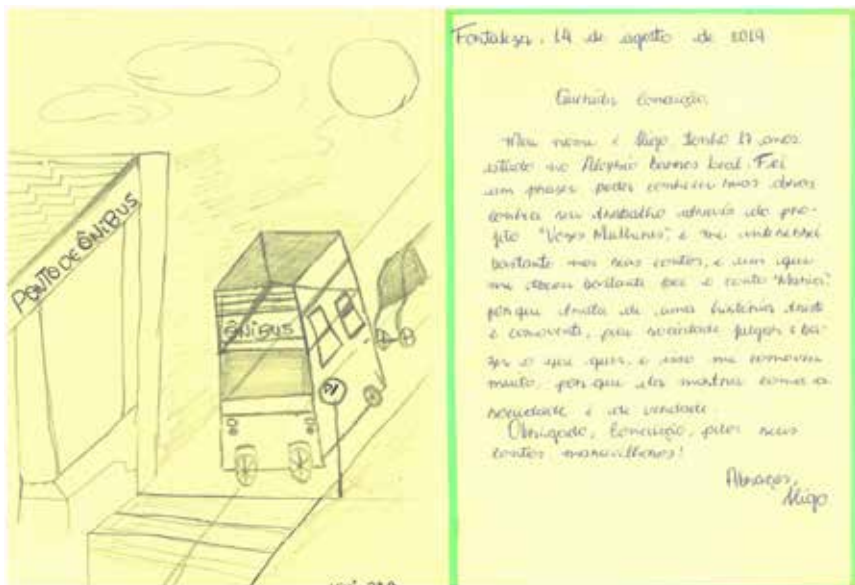 PONTO DE ÔNIBUS
ÔNIBUS
Fortaleza, 14 de agosto de 2019
Querida Conceição,
Meu nome é Higo, tenho 17 anos
estudo no Aloysio Barros Leal. Foi
um prazer poder conhecer suas obras
conheci seu trabalho através do pro-
jeto "Vozes Mulheres", e me interessei
bastante nos seus contos, e um que
me tocou bastante foi o conto "Maria",
porque trata de uma história triste
e comovente, pela sociedade julgar e fa-
zer o que quer, e isso me comoveu
muito, por que ela mostra como a
sociedade é de verdade.
Obrigado, Conceição, pelos seus
contos maravilhosos!
Abraços,
Higo